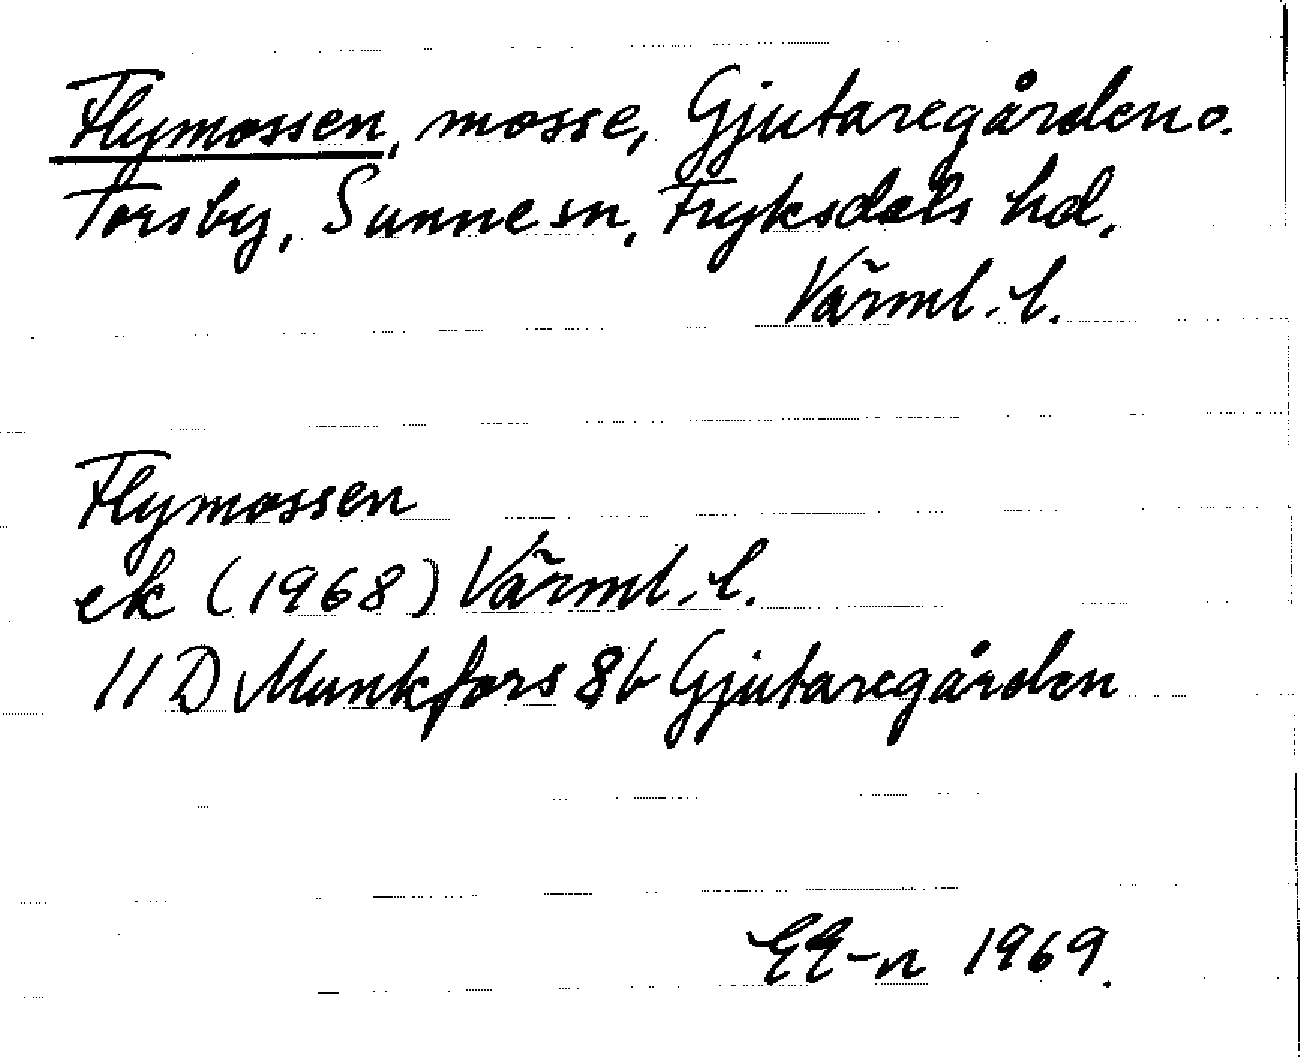 Flymossen, mosse, Gjutaregården o.
Torsby, Sunne sn, Fryksdals hd,
Värml. l.
Flymossen
ek (1968) Värml. l.
11 D Munkfors 8b Gjutaregården
EE-n 1969.